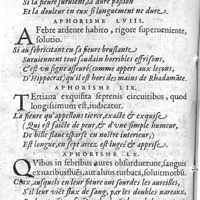 Si la fieure survient, la dure passion
Et la douleur en eux si longuement ne dure.
APHORISME LVIII.
A Febre ardente habito, rigore superueniente,
solutio.
Si au febricitant en sa fieure bruslante
Suruiennent tout soudain horribles frissons,
C'est un signe asseuré, comme appert aux leçons,
D'Hippocrat, qu'il est hors des mains de Rhadamāte.
APHORISME LIX.
TErtiana exquisita septenis circuitibus, quod
longissimum est, iudicatur.
La fieure qu'appellons tierce, exacte & exquise
(Qui est faicte de peur, & d'une simple humeur,
De bille flaue espars en nostre interieur)
Est longue, en sept acces est iugée & prise.
APHORISME LX.
QVibus in febribus aures obsurduerunt, sanguis
ex naribus fusus, aut aluus turbata, soluit morbū.
Ceux, ausquels en leur fieure ont sourdes les aureilles,
S'il leur vient flux de sang, par les doubles nareaux,